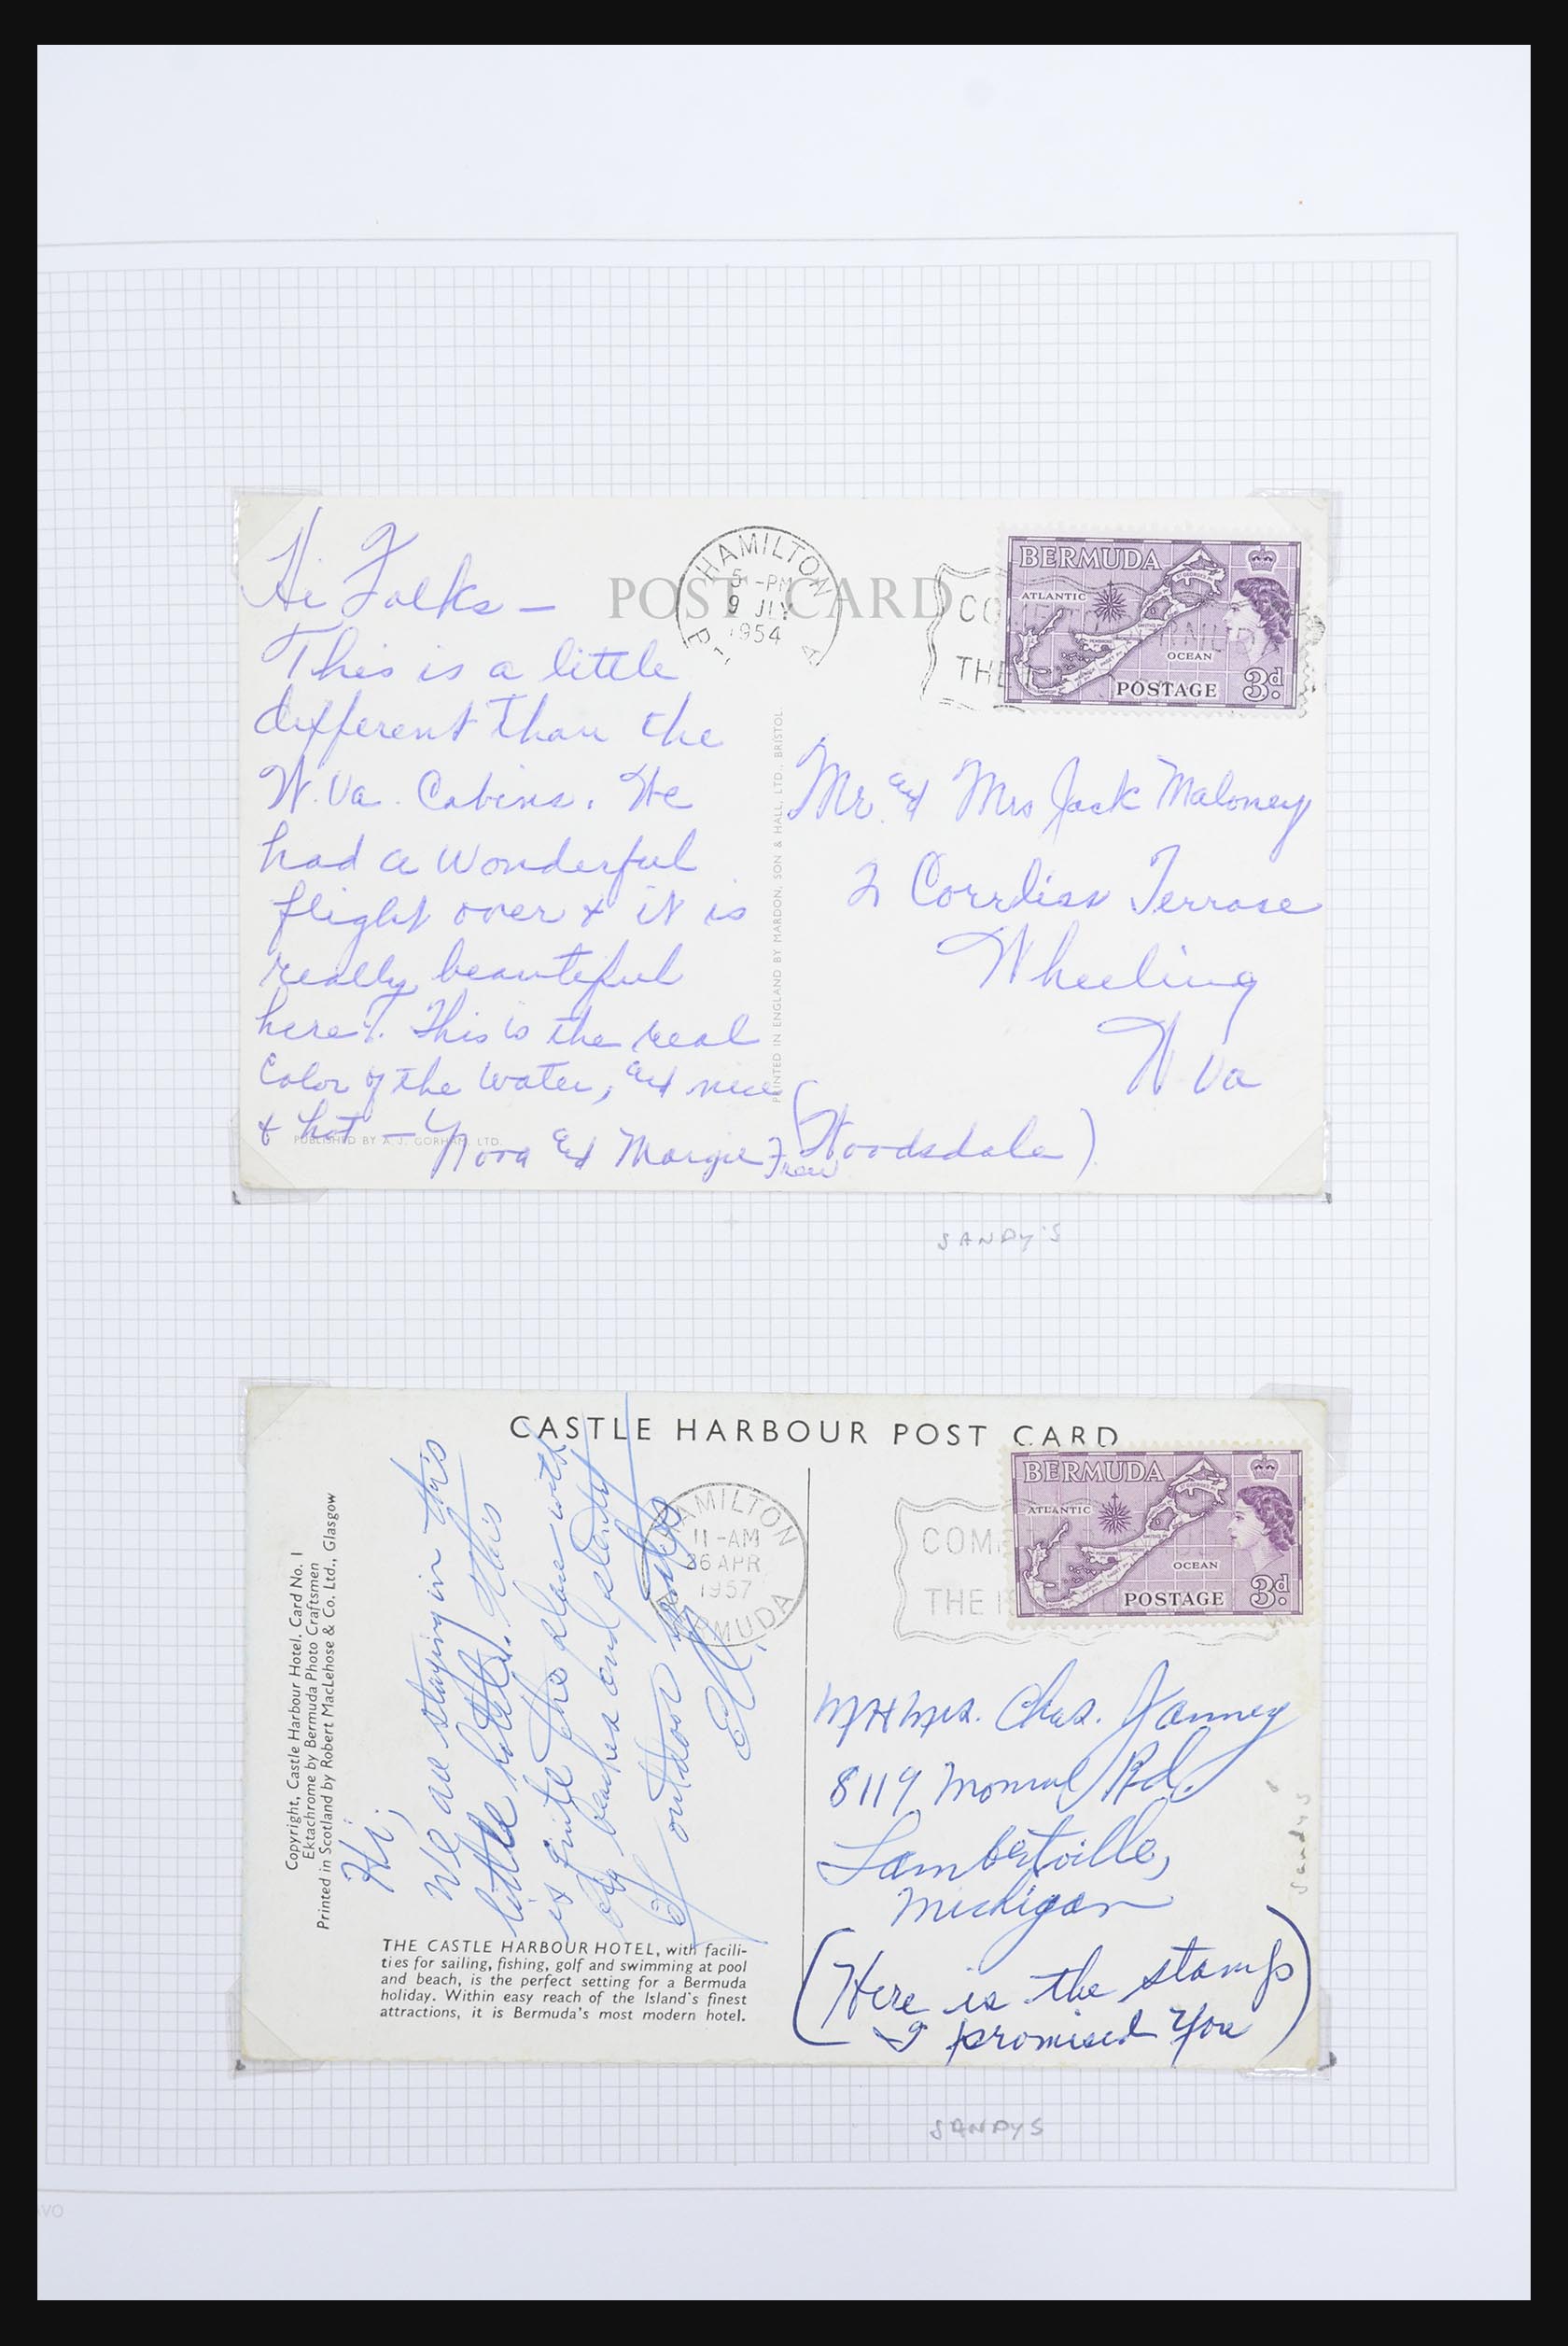 Hi Folks —
This is a little
different than the
W. Va. Cabins. We
had a wonderful
flight over & it is
really beautiful
here. This is the real
Color of the Water, and nice
& hot — Nora and Margie Frew
PUBLISHED BY A. J. GORHAM, LTD.
POST CARD
PRINTED IN ENGLAND BY MARDON, SON & HALL, LTD., BRISTOL.
HAMILTON
5 - PM
9 JLY
1954
CO
THE
BERMUDA
ATLANTIC
ST GEORGES
OCEAN
POSTAGE 3d.
Mr. and Mrs Jack Maloney
2 Corrliss Terrase
Wheeling
W Va
(Woodsdale)
SANDY'S
CASTLE HARBOUR POST CARD
Copyright, Castle Harbour Hotel. Card No. 1
Ektachrome by Bermuda Photo Craftsmen
Printed in Scotland by Robert MacLehose & Co. Ltd., Glasgow
Hi,
We are staying in this
little hotel. This
is quite the place with
big beaches and plenty
of outdoor
THE CASTLE HARBOUR HOTEL, with facili-
ties for sailing, fishing, golf and swimming at pool
and beach, is the perfect setting for a Bermuda
holiday. Within easy reach of the Island's finest
attractions, it is Bermuda's most modern hotel.
HAMILTON
11 - AM
26 APR
1957
BERMUDA
COM
THE
BERMUDA
ATLANTIC
OCEAN
POSTAGE 3d.
Mrs. Chas. Janney
8119 Rd.
Lambertville,
Michigan
(Here is the stamp
I promised You)
Sandys
SANDYS